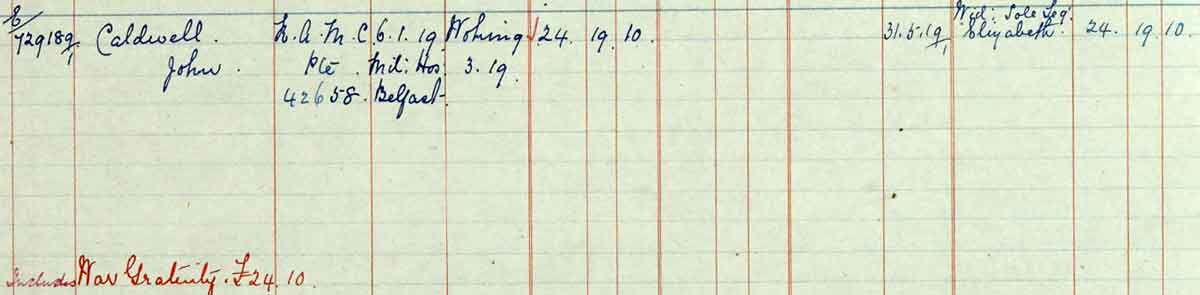 E/
729189/1 Caldwell. R.A.M.C. 6.1.19 Woking 24. 19. 10. 31.5.19 Wid: Sole Leg. Elizabeth. 24. 19. 10.
John. Pte. Mil: Hos. 3.19.
42658. Belfast.
Includes War Gratuity. £24.10.